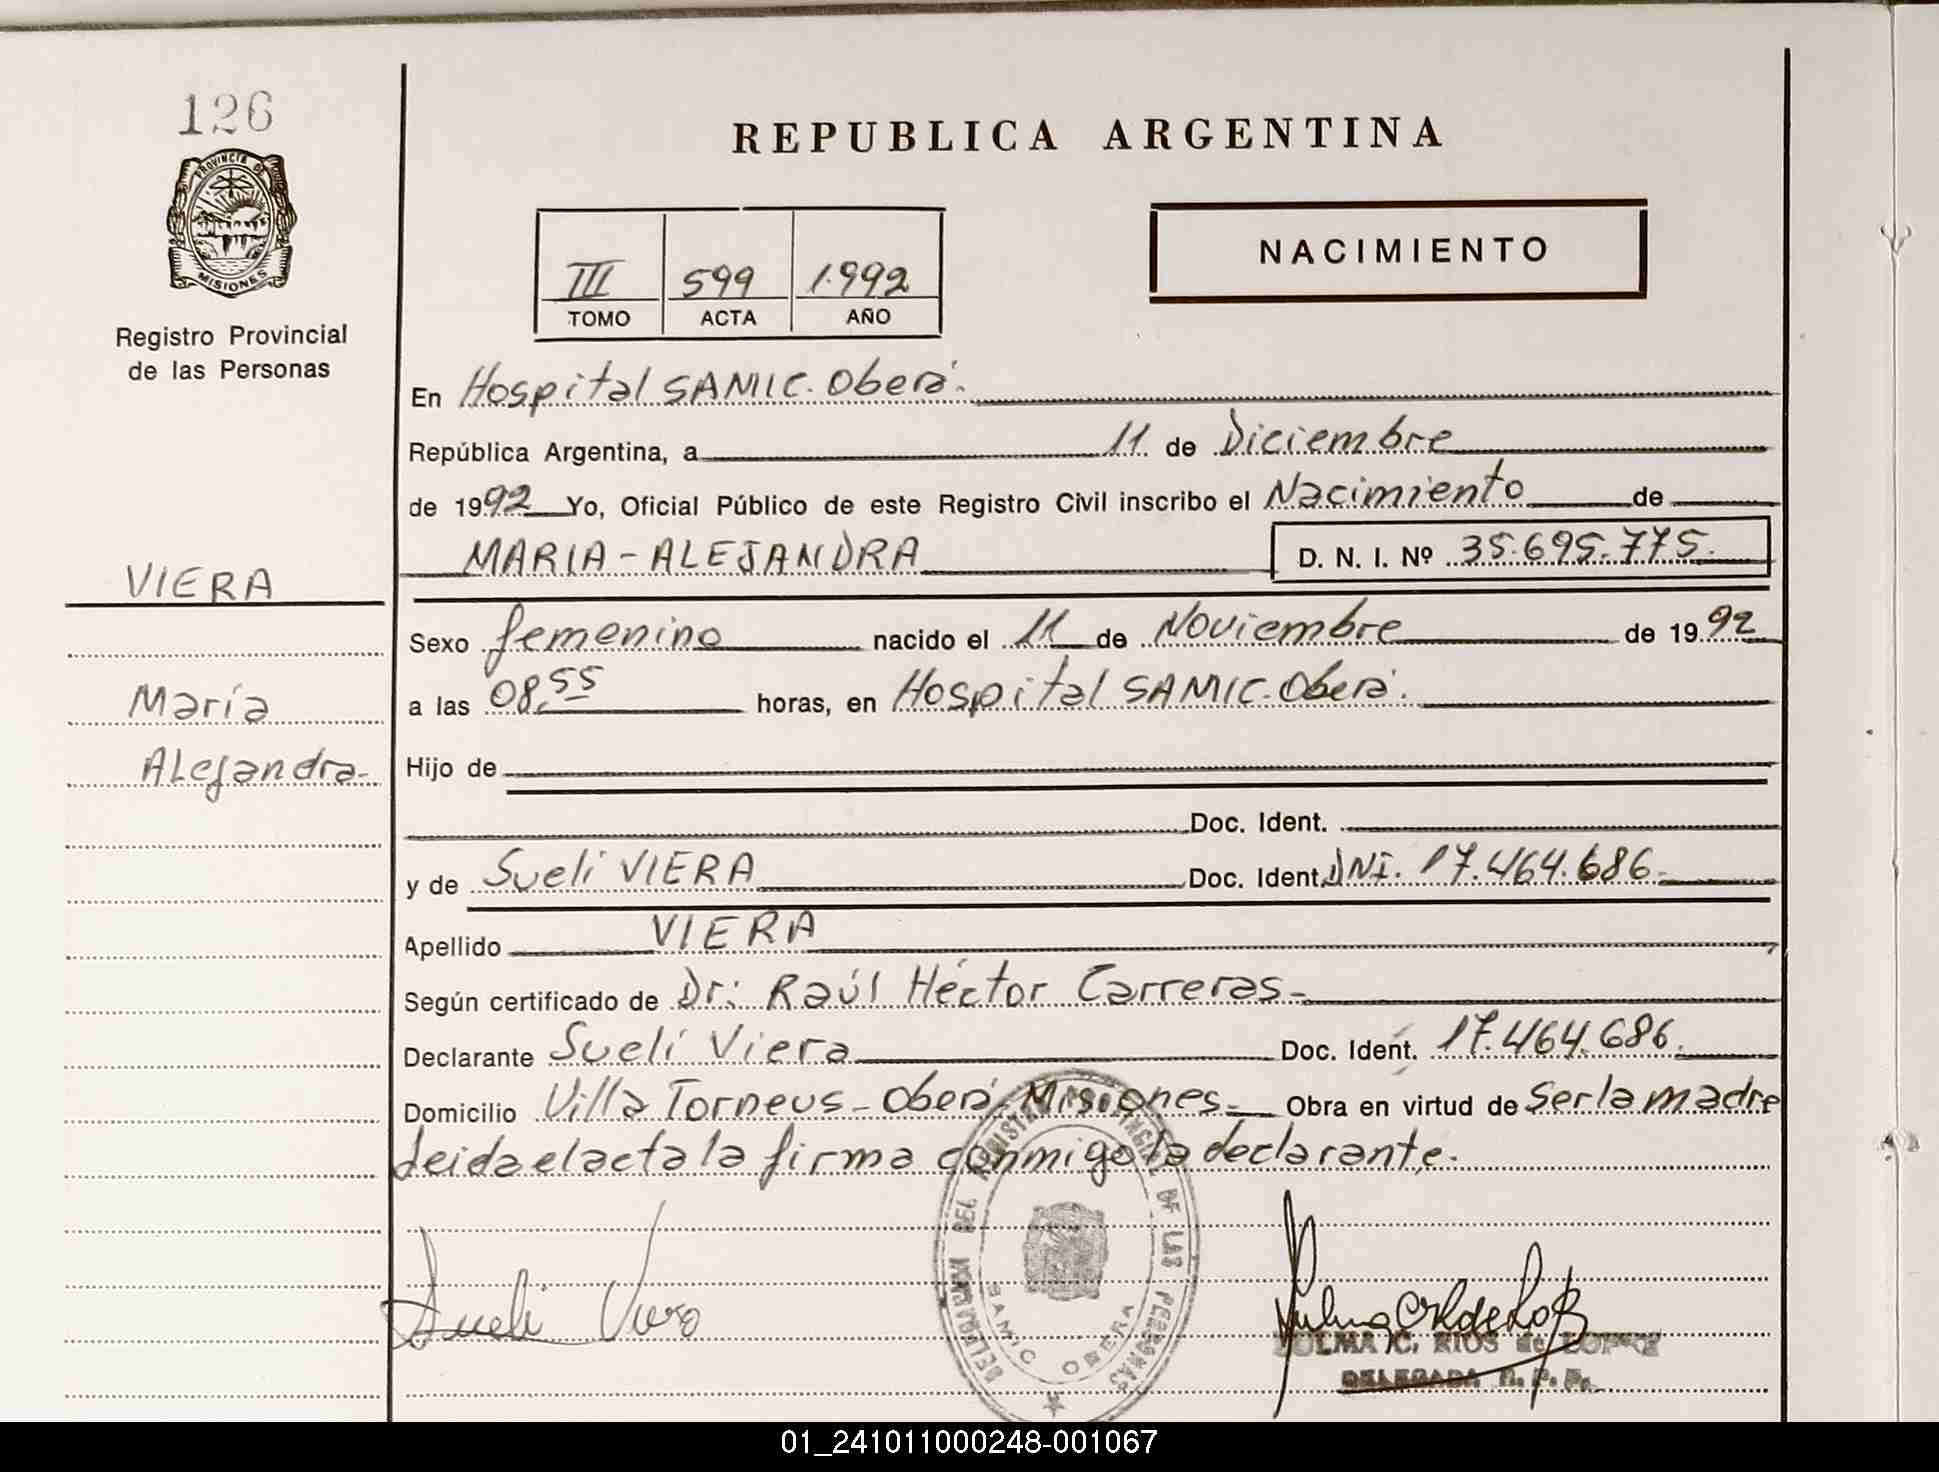 126
PROVINCIA DE
MISIONES
Registro Provincial
de las Personas
VIERA
María
Alejandra-
REPUBLICA ARGENTINA
III 599 1.992
TOMO ACTA AÑO
NACIMIENTO
En Hospital SAMIC. Oberá.
República Argentina, a 11 de Diciembre
de 1992 Yo, Oficial Público de este Registro Civil inscribo el Nacimiento de
MARIA-ALEJANDRA D. N. I. Nº 35.695.775.
Sexo femenino nacido el 11 de Noviembre de 1992
a las 08,55 horas, en Hospital SAMIC. Oberá.
Hijo de
Doc. Ident.
y de Sueli VIERA Doc. Ident. DNI. 17.464.686.
Apellido VIERA
Según certificado de Dr: Raúl Héctor Carreras-
Declarante Suelí Viera Doc. Ident. 17.464.686.
Domicilio Villa Torneus-Oberá, Misiones- Obra en virtud de Ser la madre
leida el acta la firma conmigo la declarante.
DELEGACION DEL REGISTRO PROVINCIAL DE LAS PERSONAS
SAMIC OBERA
Sueli Viera
C. RIOS de LOPEZ
DELEGADA R. P. P.
01_241011000248-001067